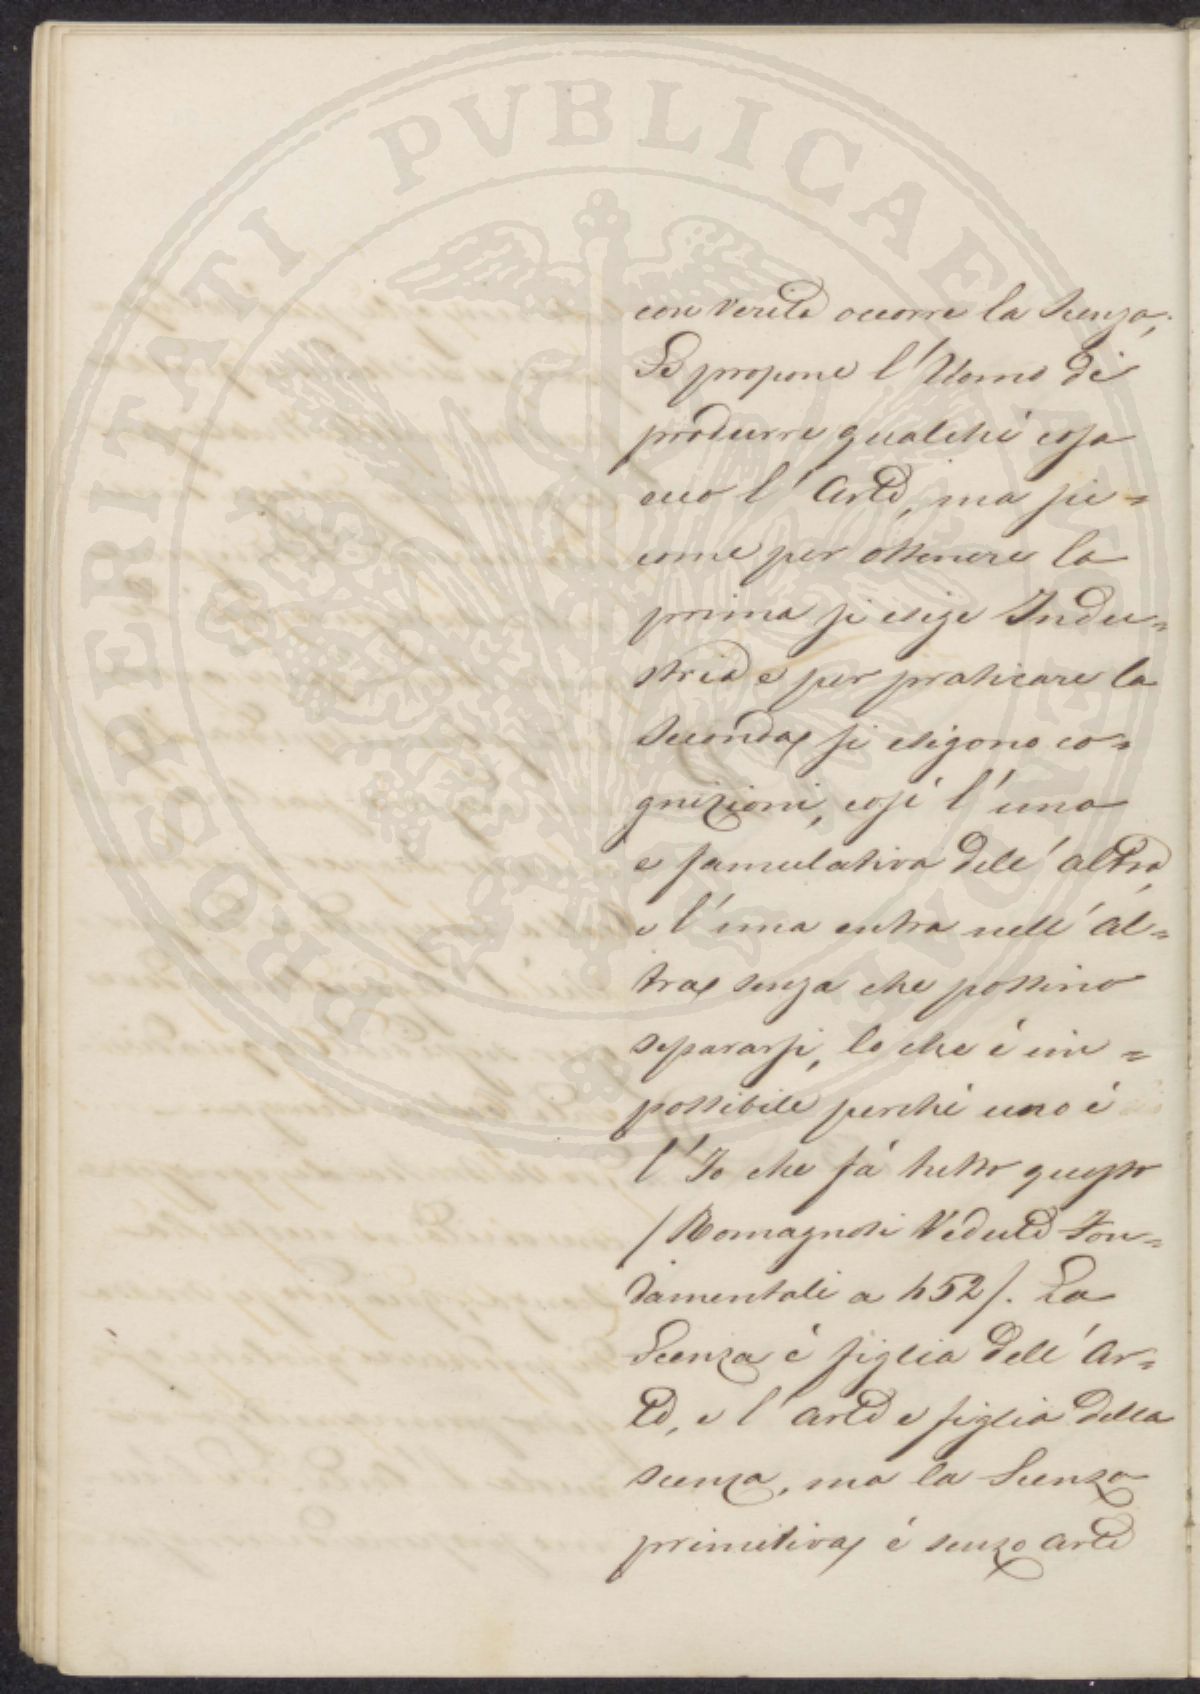 PROSPERITATI PVBLICAE AVGENDAE
con verità occorre la Scenza;
Se propone l'Uomo di
produrre qualche cosa
ecco l'Arte, ma sic=
come per ottenere la
prima si esige Indu=
stria e per praticare la
seconda si esigono co=
gnizioni, così l'una
e famulativa dell'altra,
e l'una entra nell'al=
tra senza che possino
separarsi, lo che è im=
possibile perchè uno è
l'Io che fà tutto questo
/Romagnosi Vedute Fon=
damentali a 452/. La
Scenza è figlia dell'Ar=
te, e l'arte e figlia della
scenza, ma la Scenza
primitiva è senza arte